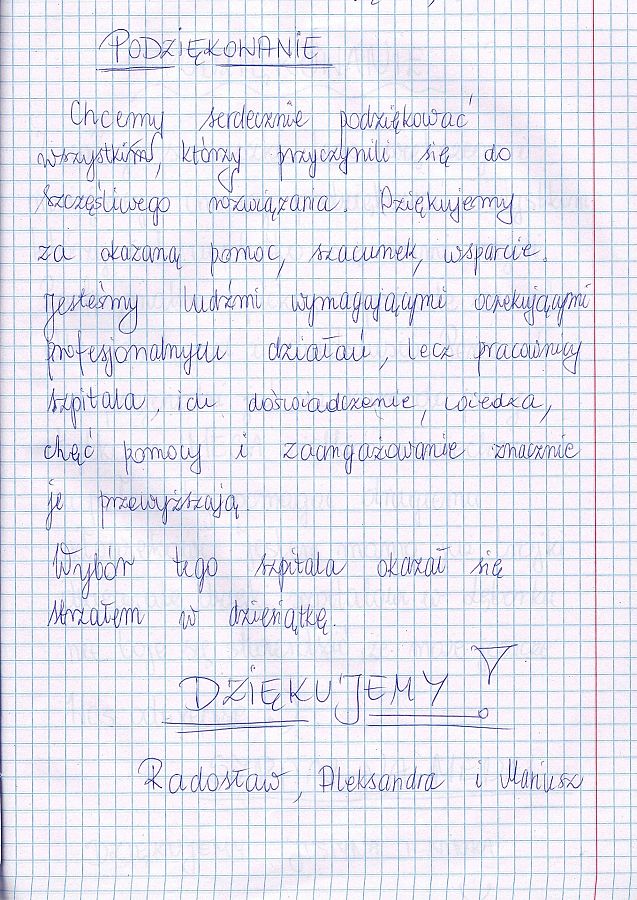 PODZIĘKOWANIE
Chcemy serdecznie podziękować
wszystkim, którzy przyczynili się do
szczęśliwego rozwiązania. Dziękujemy
za okazaną pomoc, szacunek, wsparcie.
Jesteśmy ludźmi wymagającymi oczekującymi
profesjonalnych działań, lecz pracownicy
szpitala, ich doświadczenie, wiedza,
chęć pomocy i zaangażowanie znacznie
je przewyższają
Wybór tego szpitala okazał się
strzałem w dziesiątkę.
DZIĘKUJEMY!
Radosław, Aleksandra i Mariusz